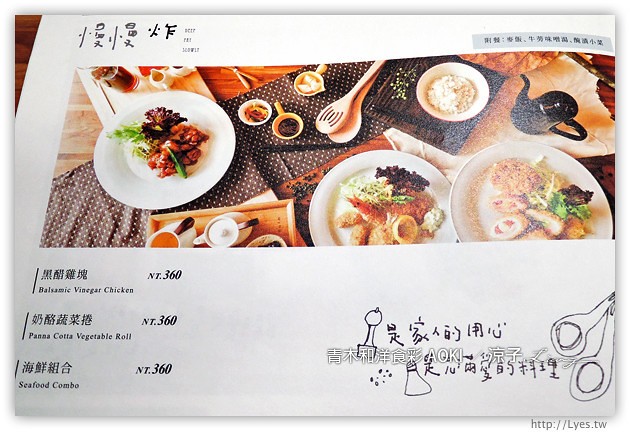 慢慢炸 DEEP
FRY
SLOWLY
附餐：麥飯、牛蒡味噌湯、醃漬小菜
黑醋雞塊 NT.360
Balsamic Vinegar Chicken
奶酪蔬菜捲 NT.360
Panna Cotta Vegetable Roll
海鮮組合 NT.360
Seafood Combo
是家人的用心
青木和洋食彩 AOKI 凉子
是心滿愛的料理
http://Lyes.tw